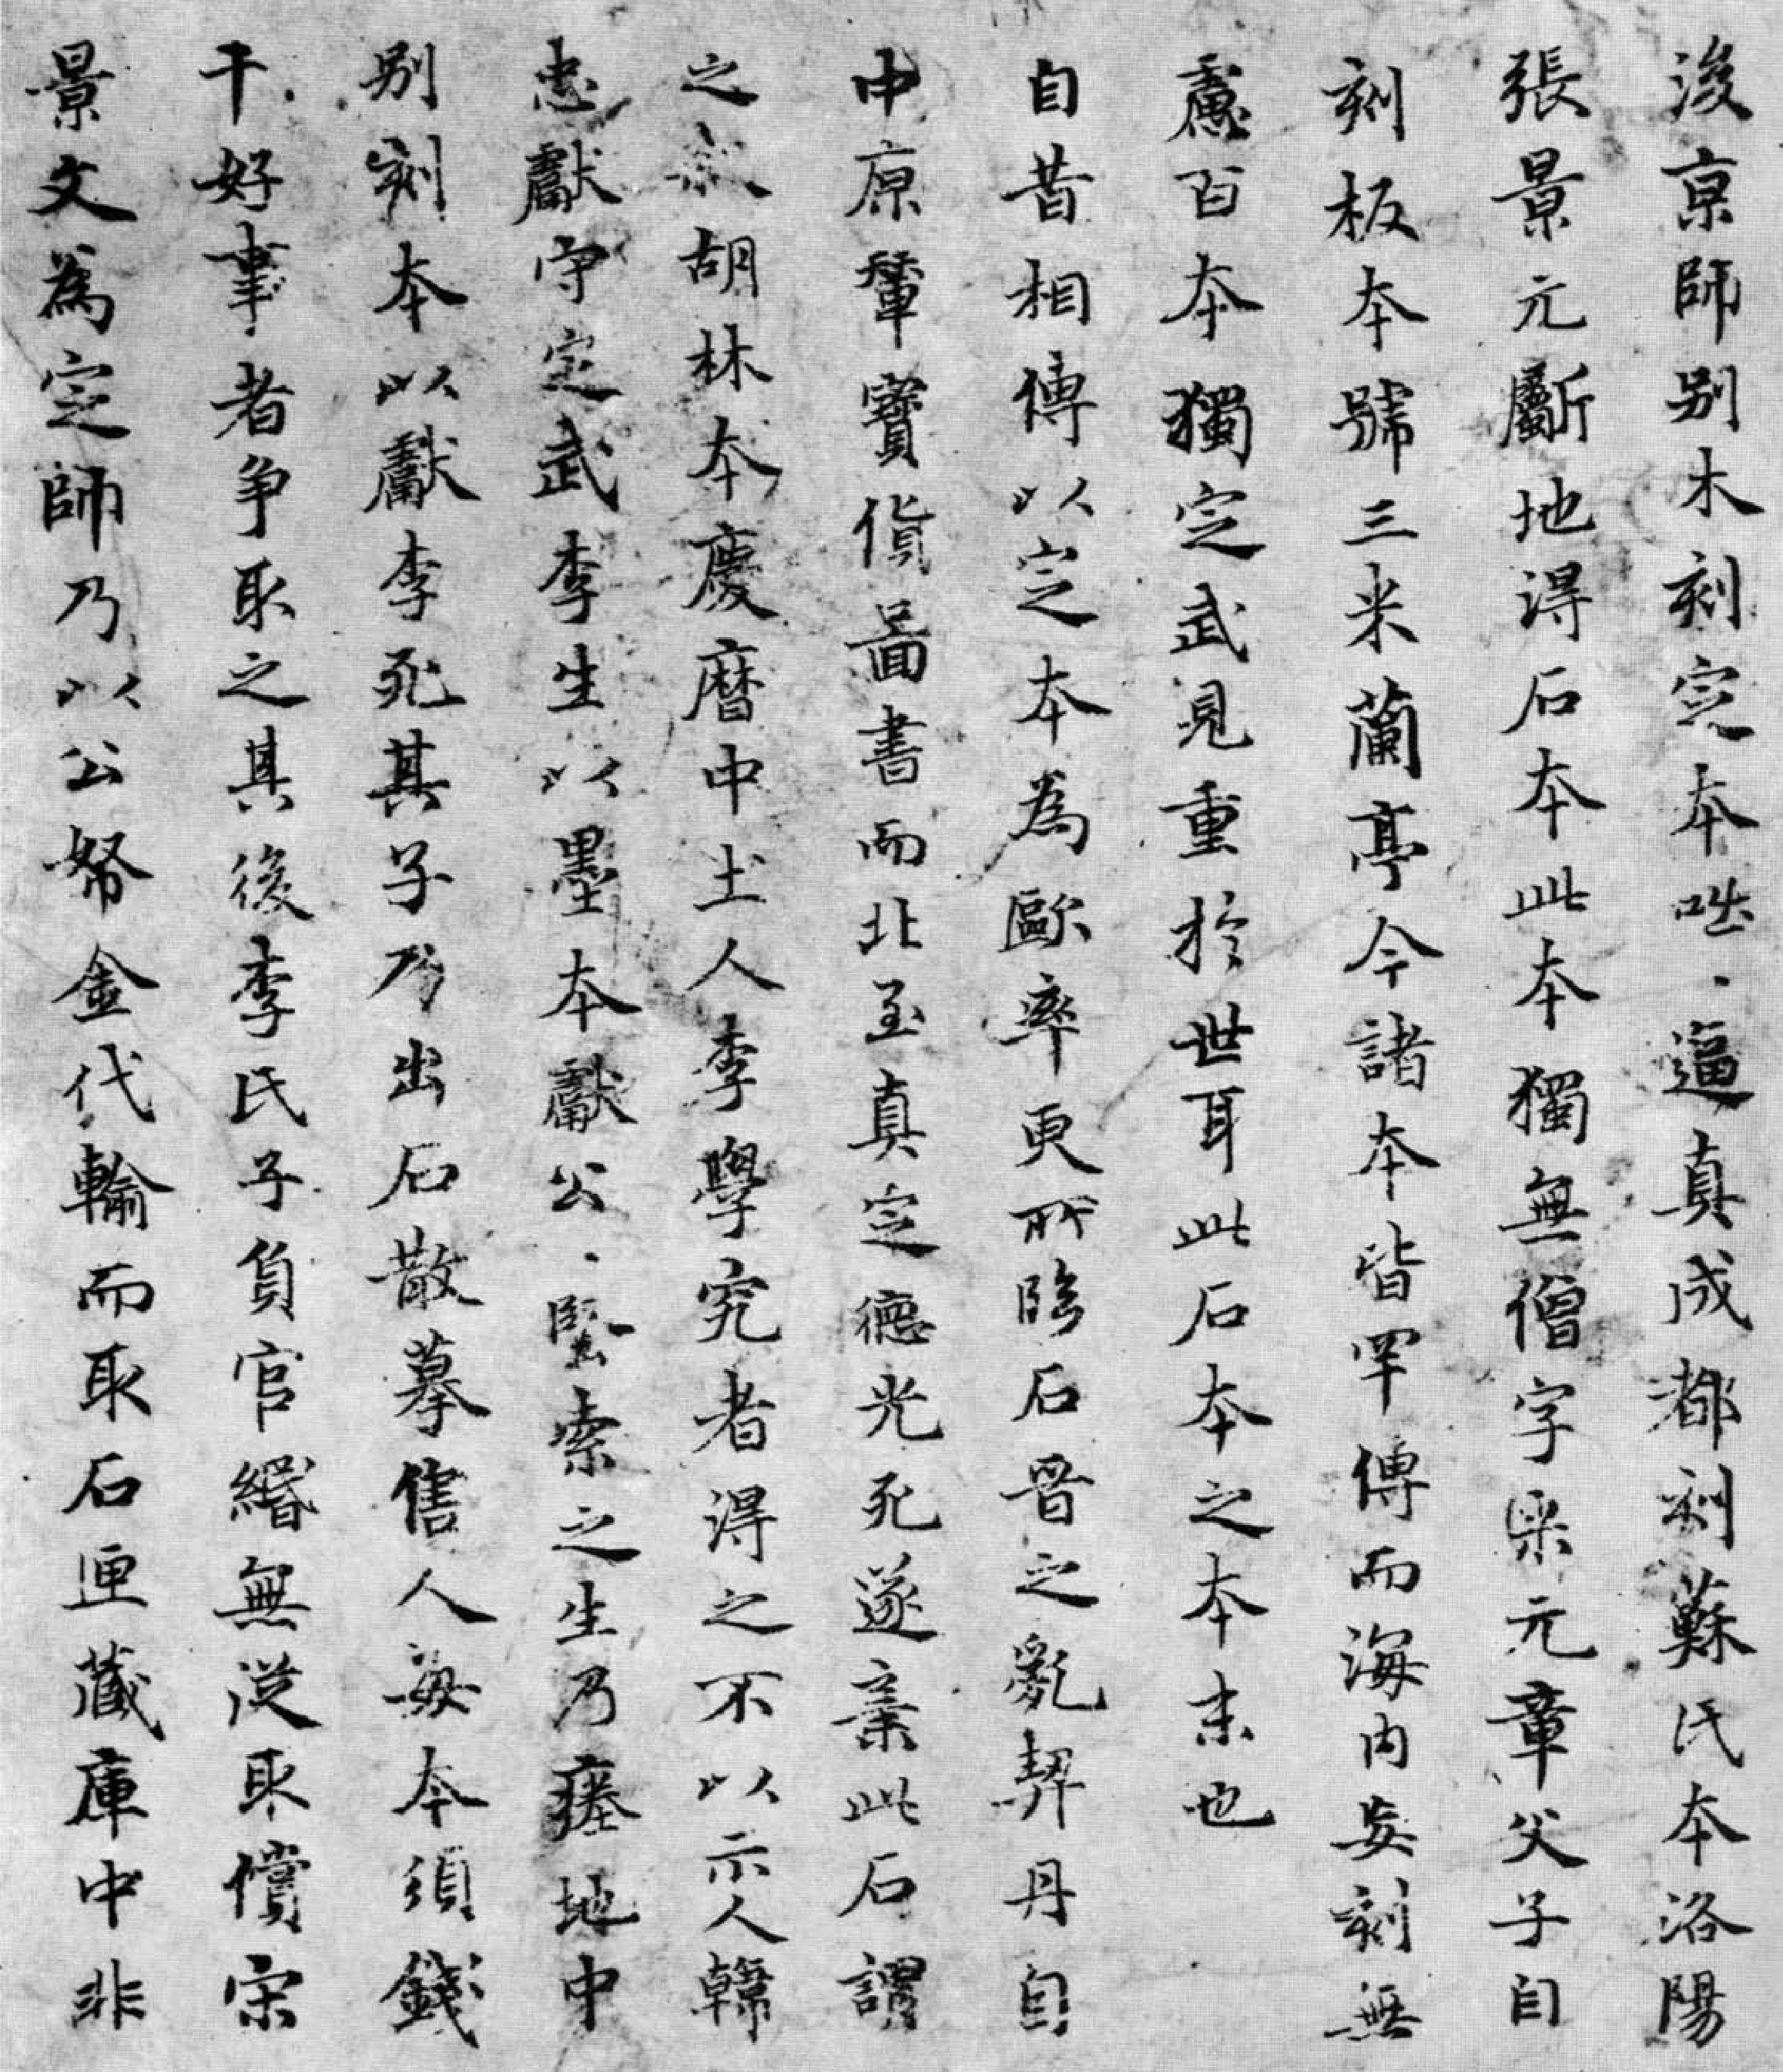 後京師別木刻定本咄、逼真成都刻蘇氏本洛陽
張景元斸地得石本此本獨無僧字梁元章父子自
刻板本號三米蘭亭今諸本皆罕傳而海内妄刻無
慮百本獨定武見重於世耳此石本之本末也
自昔相傳以定本為歐率更所臨石晉之亂契丹自
中原輦寶貨啚書而北至真定德光死遂棄此石謂
之殺胡林本慶曆中土人李學究者得之不以示人韓
忠獻守定武李生以墨本獻公、堅索之生乃瘞地中
別刻本以獻李死其子乃出石散摹售人每本須錢
千好事者爭取之其後李氏子負官緡無從取償宋
景文為定師乃以公帑金代輸而取石匣藏庫中非